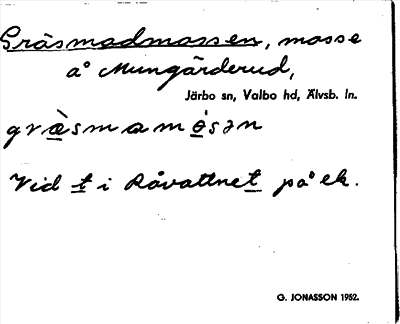 Gräsmadmossen, mosse
å Mungärderud,
Järbo sn, Valbo hd, Älvsb. ln.
græ̀smamósən
Vid t i Råvattnet på ek.
G. JONASSON 1952.